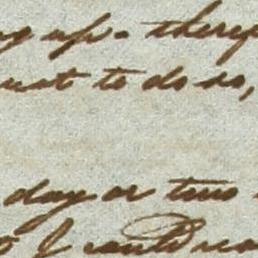 up. there
not to do so,
day or two
I could